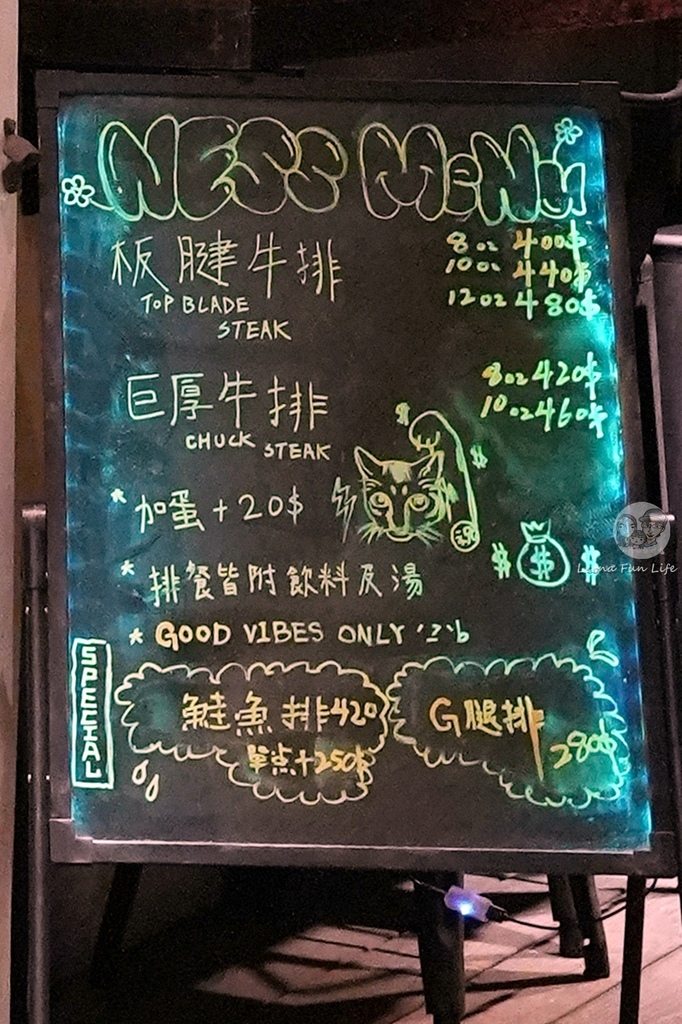 NESS MeNu
板腱牛排
TOP BLADE
STEAK
8oz 400$
10oz 440$
12oz 480$
巨厚牛排
CHUCK STEAK
8oz 420$
10oz 460$
* 加蛋+20$
* 排餐皆附飲料及湯
* GOOD VIBES ONLY
SPECIAL
鮭魚排420
單点+250$
G腿排
280$
Luna Fun Life